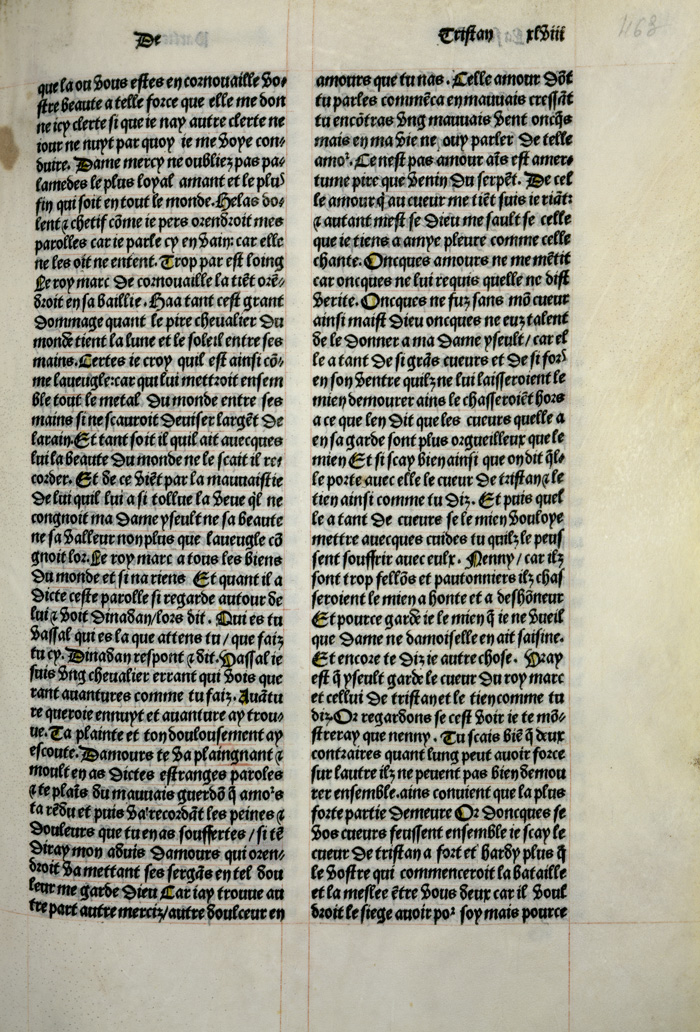 De
Tristan xlviii
468
que la ou vous estes en cornouaille vo⸗
stre beaute a telle force que elle me don
ne icy clerte si que ie nay autre clerte ne
iour ne nuyt par quoy ie me voye con⸗
duire. Dame mercy ne oubliez pas pa⸗
lamedes le plus loyal amant et le plus
fin qui soit en tout le monde. Helas do⸗
lent ⁊ chetif cõme ie pers orendroit mes
parolles car ie parle cy en vain: car elle
ne les oit ne entent. Trop par est loing
Le roy marc de cornouaille la tiẽt orẽ⸗
droit en sa baillie. Haa tant cest grant
dommage quant le pire chevalier du
monde tient la lune et le soleil entre ses
mains. Certes ie croy quil est ainsi cõ⸗
me laveugle: car qui lui mettroit ensem
ble tout le metal du monde entre ses
mains si ne scauroit deviser largẽt de
larain. Et tant soit il quil ait avecques
lui la beaute du monde ne le scait il re⸗
corder. Et de ce viẽt par la mauvaistie
de lui quil lui a si tollue la veue q̃l ne
congnoit ma dame yseult ne sa beaute
ne sa valleur non plus que laveugle cõ
gnoit lor. Le roy marc a tous les biens
du monde et si na riens Et quant il a
dicte ceste parolle si regarde autour de
lui ⁊ voit dinadan/lors dit. Qui es tu
vassal qui es la que attens tu/que faiz
tu cy. Dinadan respont ⁊ dit. Vassal ie
suis vng chevalier errant qui vois que
rant avantures comme tu faiz. Avãtu
re queroie ennuyt et avanture ay trou⸗
ve. Ta plainte et ton doulousement ay
escoute. Damours te va plaingnant ⁊
moult en as dictes estranges paroles
⁊ te plaĩs du mauvais guerdõ q̃ amoꝰs
ta rẽdu et puis va recordãt les peines ⁊
douleurs que tu en as souffertes/si tẽ
diray mon aduis damours qui oren⸗
droit va mettant ses sergãs en tel dou
leur me garde dieu Car iay trouve au
tre part autre merciz/autre doulceur en
amours que tu nas. Celle amour dõt
tu parles commẽca en mauvais cressãt
tu encõtras vng mauvais vent oncq̃s
mais en ma vie ne ouy parler de telle
amoꝰ. Ce nest pas amour aĩs est amer⸗
tume pire que venin du serpẽt. De cel
le amour q̃ au cueur me tiẽt suis ie riãt:
⁊ autant mest se dieu me sault se celle
que ie tiens a amye pleure comme celle
chante. Oncques amours ne me mẽtit
car oncques ne lui requis quelle ne dist
verite. Oncques ne fuz sans mõ cueur
ainsi maist dieu oncques ne euz talent
de le donner a ma dame yseult/car el
le a tant de si grãs cueurs et de si fors
en son ventre quilz ne lui laisseroient le
mien demourer ains le chasseroiẽt hors
a ce que len dit que les cueurs quelle a
en sa garde sont plus orgueilleux que le
mien Et si scay bien ainsi que on dit q̃l⸗
le porte avec elle le cueur de tristan ⁊ le
tien ainsi comme tu diz. Et puis quel
le a tant de cueurs se le mien vouloye
mettre avecques cuides tu quilz le peus
sent souffrir avec eulx. Nenny/car ilz
sont trop fellõs et pautonniers ilz chas
seroient le mien a honte et a deshõneur
Et pource garde ie le mien q̃ ie ne vueil
que dame ne damoiselle en ait saisine.
Et encore te diz ie autre chose. Vray
est q̃ yseult garde le cueur du roy marc
et cellui de tristan et le tien comme tu
diz. Or regardons se cest voir ie te mõ⸗
streray que nenny. Tu scais biẽ q̃ deux
contraires quant lung peut avoir force
sur lautre ilz ne peuent pas bien demou
rer ensemble. ains convient que la plus
forte partie demeure Or doncques se
vos cueurs feussent ensemble ie scay le
cueur de tristan a fort et hardy plus q̃
le vostre qui commenceroit la bataille
et la meslee ẽtre vous deux car il voul
droit le siege avoir poꝰ soy mais pource